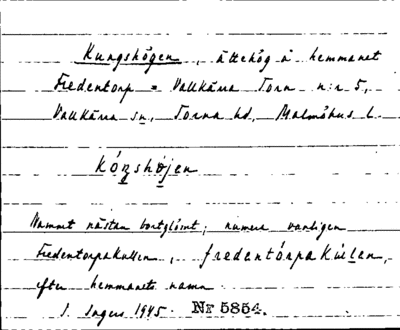 Kungshögen, ättehög å hemmanet
Fredentorp = Vallkärra Torn n:r 5,
Vallkärra sn, Torna hd, Malmöhus l.
Namnet nästan bortglömt; numera vanligen
Fredentorpakullen, fredentórpakúllen,
efter hemmanets namn.
I. Ingers 1945. NF 5854.